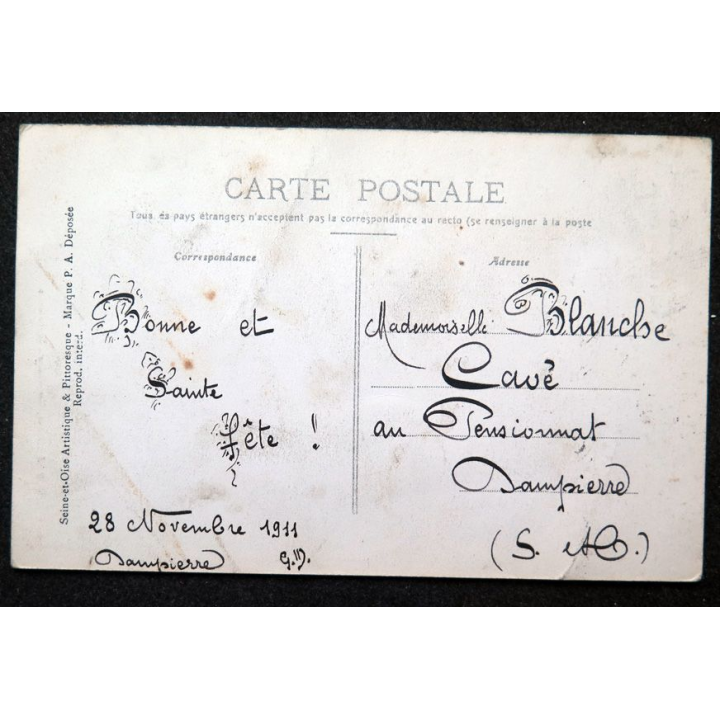 CARTE POSTALE
Tous és pays étrangers n'acceptent pas la correspondance au recto (se renseigner à la poste
Correspondance
Bonne et
Sainte
Fête !
28 Novembre 1911
Dampierre
Adresse
Mademoiselle Blanche
Cavé
au Pensionnat
Dampierre
(S. et O.)
Seine-et-Oise Artistique & Pittoresque - Marque P. A. Déposée
Reprod. interd.